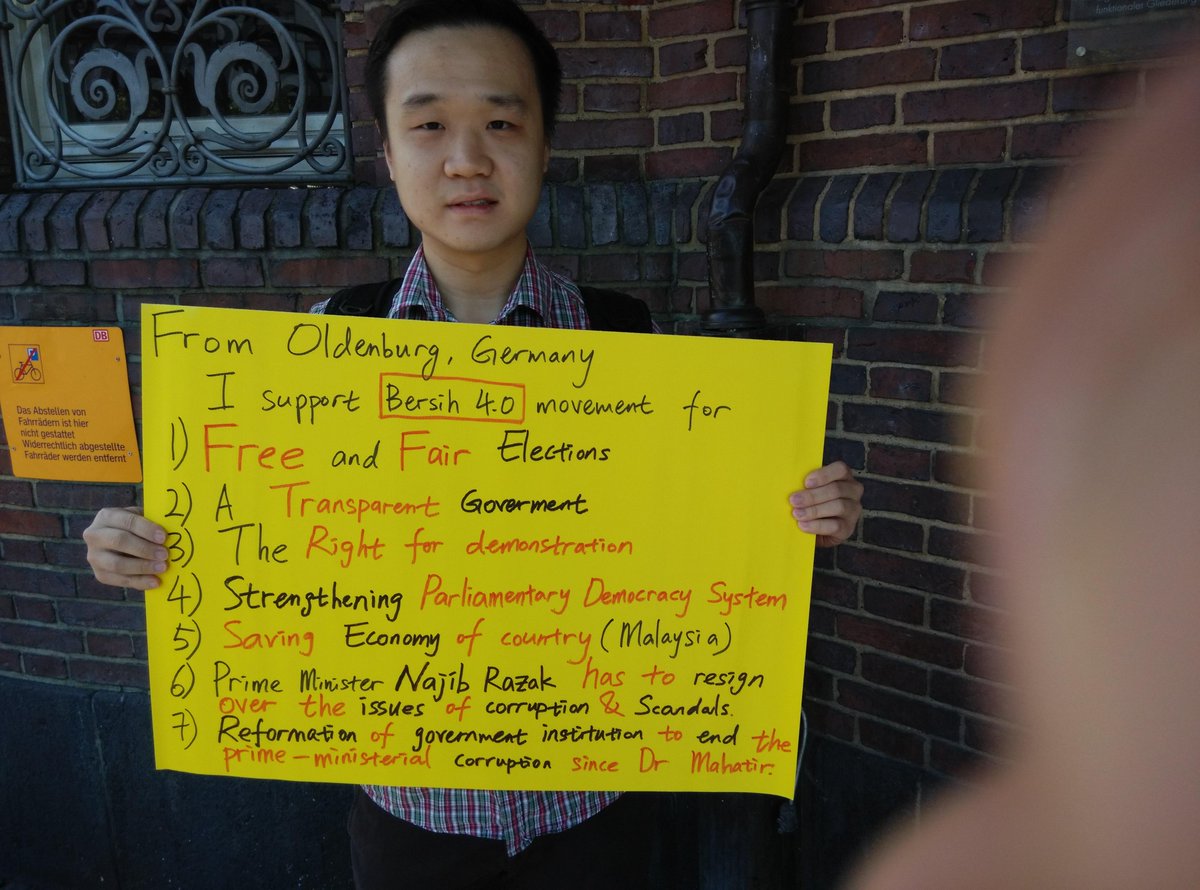 funktionaler Gliederung
From Oldenburg, Germany
I support Bersih 4.0 movement for
1) Free and Fair Elections
2) A Transparent Goverment
3) The Right for demonstration
4) Strengthening Parliamentary Democracy System
5) Saving Economy of country (Malaysia)
6) Prime Minister Najib Razak has to resign
over the issues of corruption & Scandals.
7) Reformation of government institution to end the
prime-ministerial corruption since Dr Mahatir.
DB
P
Das Abstellen von
Fahrrädern ist hier
nicht gestattet
Widerrechtlich abgestellte
Fahrräder werden entfernt